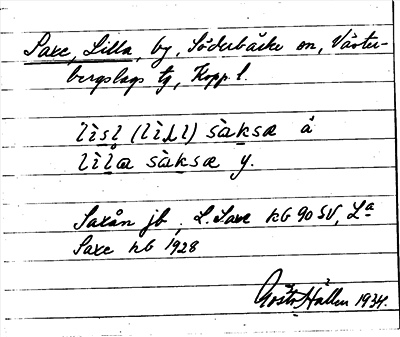 Saxe, Lilla, by, Söderbärke sn, Väster-
bergslags tg, Kopp. l.
lìsl (lìsl) sàksæ ä
lìlα sàksæ y.
Saxån jb, L. Saxe kG 90 SV, Lª
Saxe hG 1928
Gösta Hallen 1934.